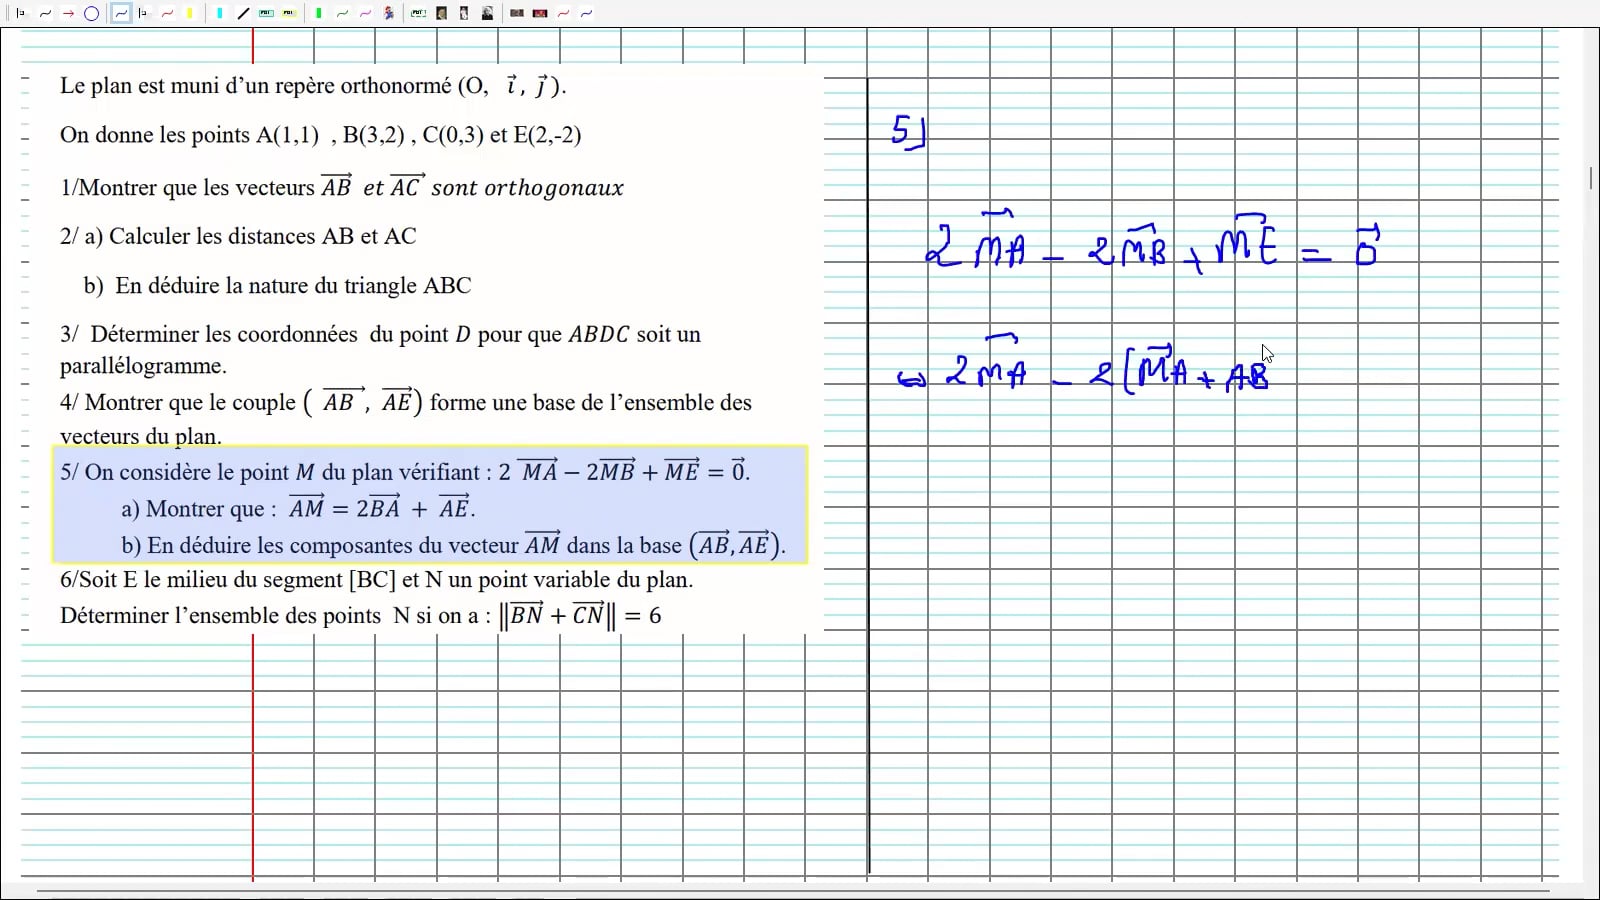 Le plan est muni d’un repère orthonormé (O, i⃗, j⃗).
On donne les points A(1,1) , B(3,2) , C(0,3) et E(2,-2)
1/Montrer que les vecteurs \overrightarrow{AB} et \overrightarrow{AC} sont orthogonaux
2/ a) Calculer les distances AB et AC
b) En déduire la nature du triangle ABC
3/ Déterminer les coordonnées du point D pour que ABDC soit un
parallélogramme.
4/ Montrer que le couple ( \overrightarrow{AB} , \overrightarrow{AE}) forme une base de l’ensemble des
vecteurs du plan.
5/ On considère le point M du plan vérifiant : 2 \overrightarrow{MA} − 2\overrightarrow{MB} + \overrightarrow{ME} = \vec{0}.
a) Montrer que : \overrightarrow{AM} = 2\overrightarrow{BA} + \overrightarrow{AE}.
b) En déduire les composantes du vecteur \overrightarrow{AM} dans la base (\overrightarrow{AB}, \overrightarrow{AE}).
6/Soit E le milieu du segment [BC] et N un point variable du plan.
Déterminer l’ensemble des points N si on a : ‖\overrightarrow{BN} + \overrightarrow{CN}‖ = 6
5]
2\overrightarrow{MA} − 2\overrightarrow{MB} + \overrightarrow{ME} = \vec{0}
⇔ 2\overrightarrow{MA} − 2[\overrightarrow{MA} + AB